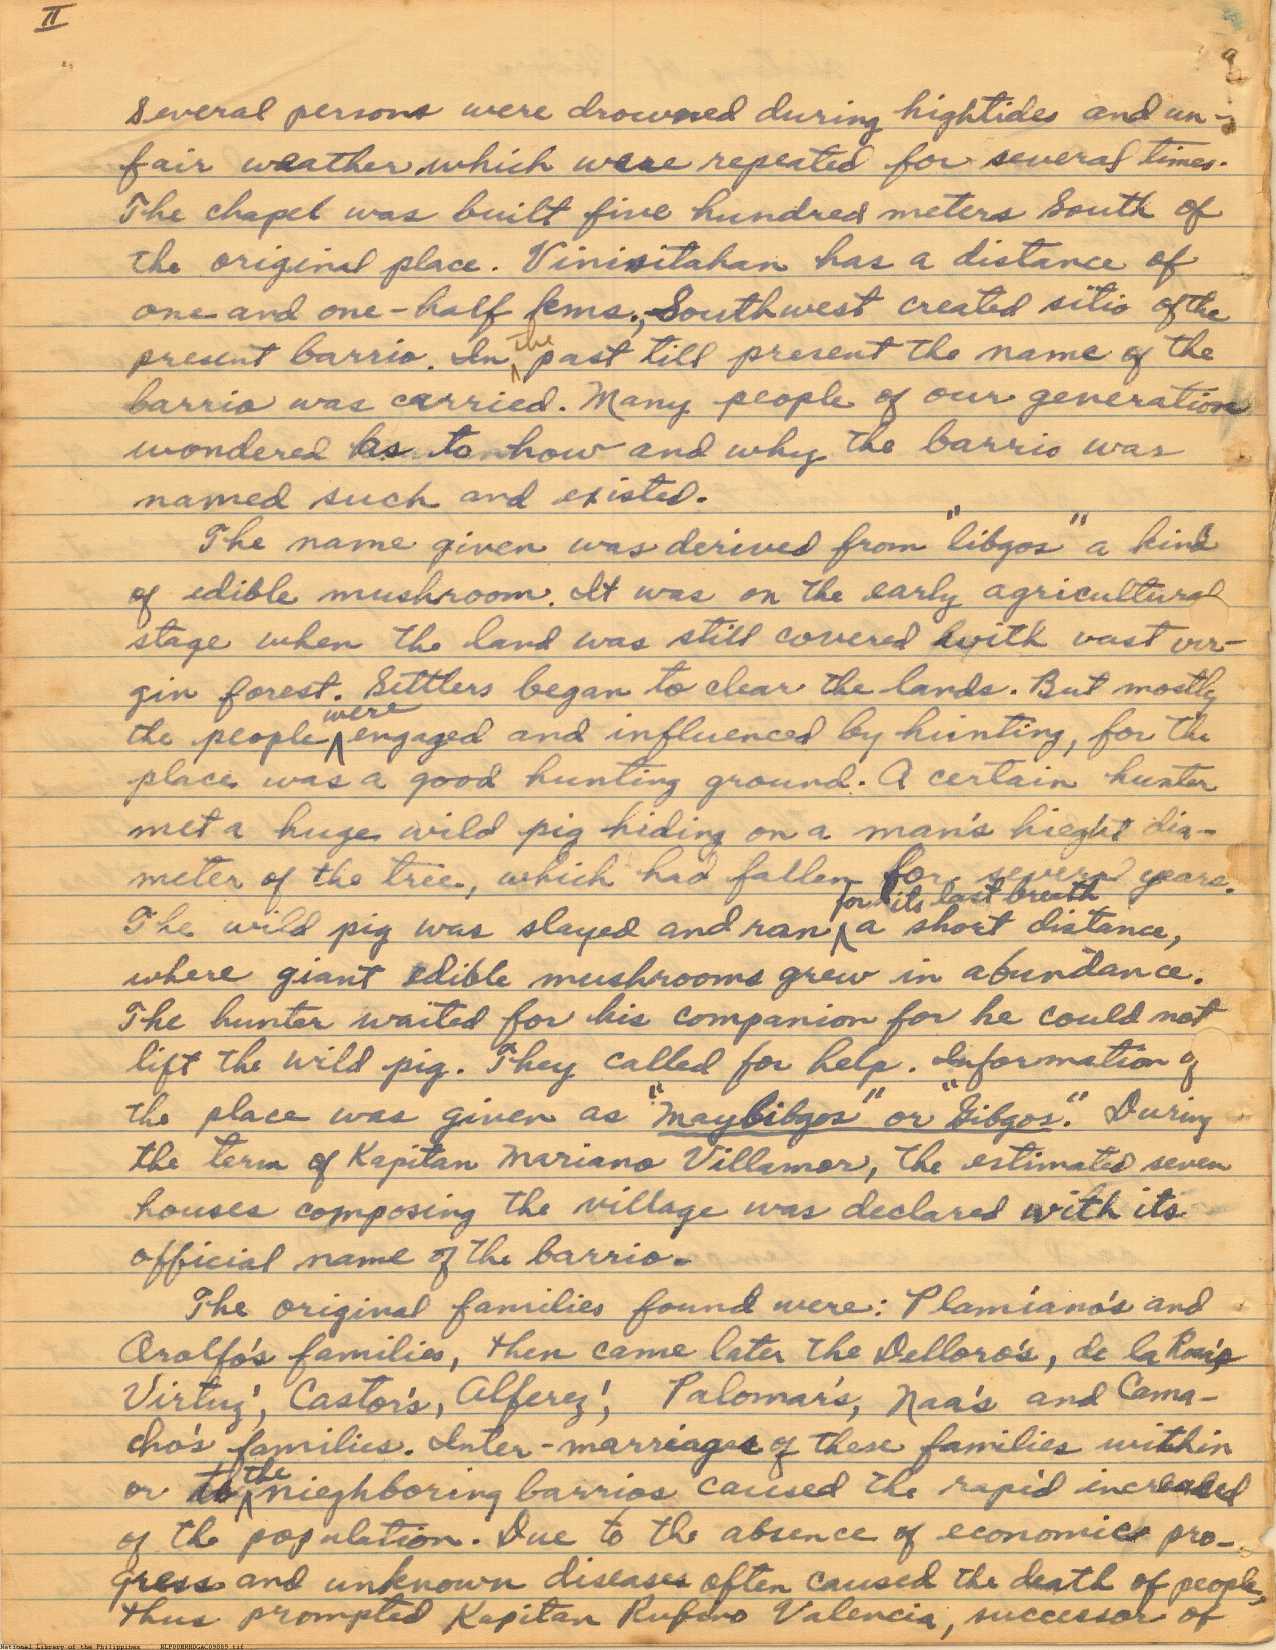 II
Several persons were drowned during hightides and un-
fair weather which were repeated for several times.
The chapel was built five hundred meters South of
the original place. Vinisitahan has a distance of
one and one-half kms., Southwest created sitio of the
present barrio. In the past till present the name of the
barrio was carried. Many people of our generation
wondered as to how and why the barrio was
named such and existed.
The name given was derived from "libgos" a kind
of edible mushroom. It was on the early agricultural
stage when the land was still covered with vast vir-
gin forest. Settlers began to clear the lands. But mostly
the people were engaged and influenced by hunting, for the
place was a good hunting ground. A certain hunter
met a huge wild pig hiding on a man's hieght dia-
meter of the tree, which had fallen for several years.
The wild pig was slayed and ran for its last breath a short distance,
where giant edible mushrooms grew in abundance.
The hunter waited for his companion for he could not
lift the wild pig. They called for help. Information of
the place was given as "Maylibgos" or "Gibgos." During
the term of Kapitan Mariano Villamor, the estimated seven
houses composing the village was declared with its
official name of the barrio.
The original families found were: Plamiano's and
Orolfo's families, then came later the Delloro's, de la
Virtuz', Castor's, Alferez', Palomar's, Naa's and Cama-
cho's families. Inter-marriages of these families within
or to the nieghboring barrios caused the rapid increased
of the population. Due to the absence of economic pro-
gress and unknown diseases often caused the death of people,
thus prompted Kapitan Rufino Valencia, successor of
National Library of the Philippines